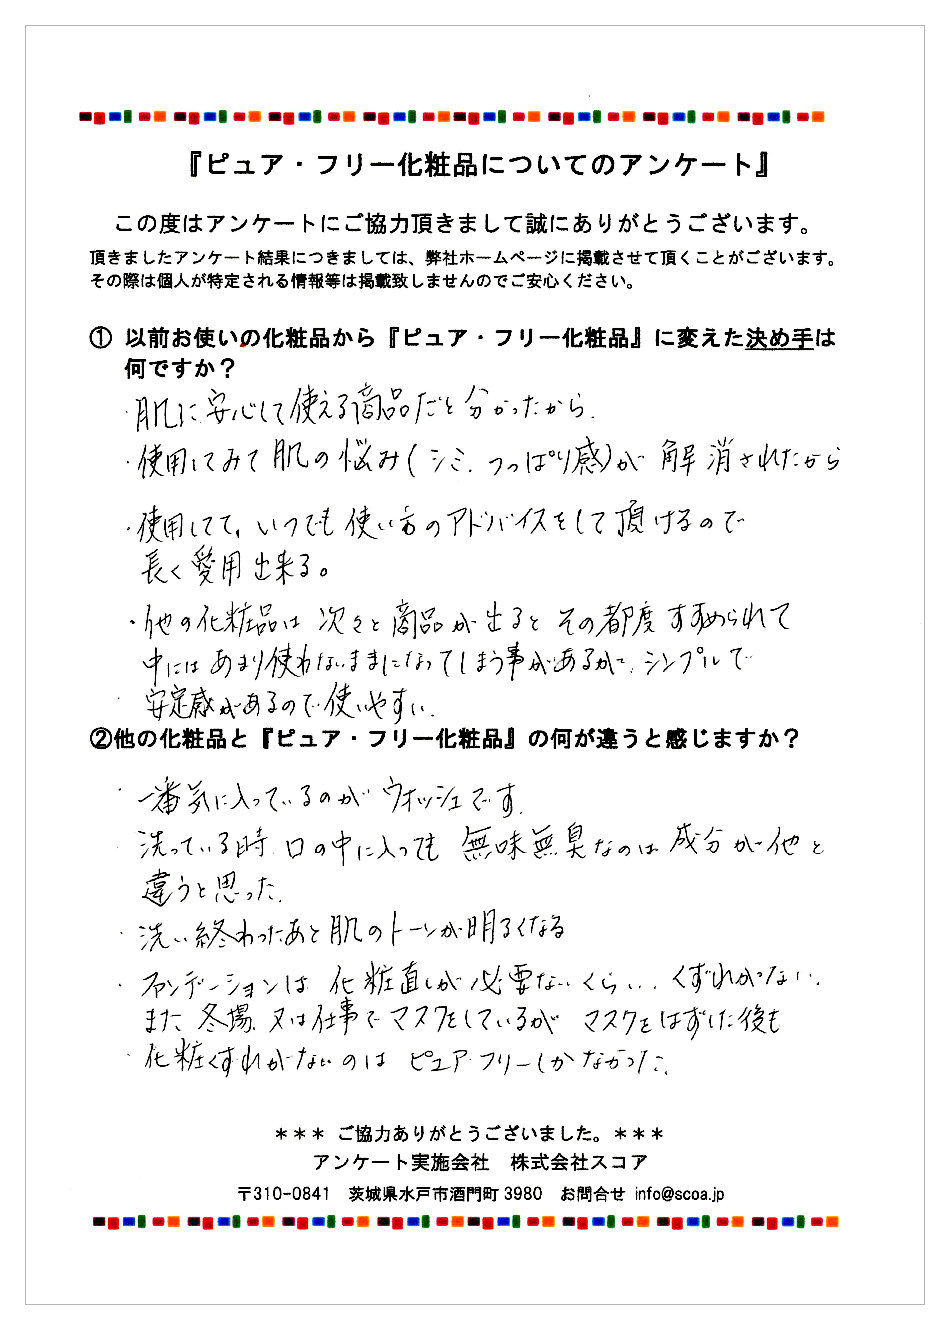 『ピュア・フリー化粧品についてのアンケート』
この度はアンケートにご協力頂きまして誠にありがとうございます。
頂きましたアンケート結果につきましては、弊社ホームページに掲載させて頂くことがございます。
その際は個人が特定される情報等は掲載致しませんのでご安心ください。
① 以前お使いの化粧品から『ピュア・フリー化粧品』に変えた決め手は
何ですか？
・肌に安心して使える商品だと分かったから.
・使用してみて肌の悩み(シミ、つっぱり感)が 解消されたから
・使用してて、いつでも使い方のアドバイスをして頂けるので
長く愛用出来る。
・他の化粧品は 次々と商品が出るとその都度すすめられて
中にはあまり使わないままになってしまう事があるが、シンプルで
安定感があるので使いやすい.
②他の化粧品と『ピュア・フリー化粧品』の何が違うと感じますか？
・一番気に入っているのが ウォッシュです.
・洗っている時 口の中に入っても 無味無臭なのは成分が他と
違うと思った.
・洗い終わったあと肌のトーンが明るくなる
・ファンデーションは 化粧直しが必要ないくらい、くずれがない.
また、冬場、又は仕事でマスクをしているが マスクをはずした後も
・化粧くずれがないのは ピュア・フリーしかなかった.
＊＊＊ ご協力ありがとうございました。＊＊＊
アンケート実施会社　株式会社スコア
〒310-0841　茨城県水戸市酒門町3980　お問合せ info@scoa.jp